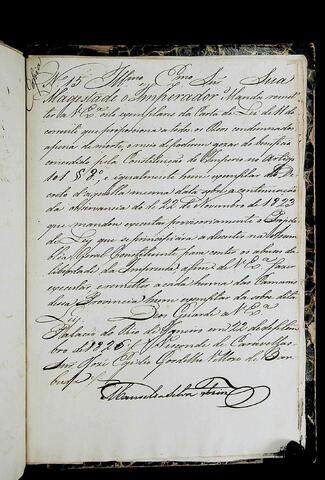 Copia
Nº 15 Illmo Exmo Snr Sua
Magestade o Imperador Manda remet
ter a V Exª este exemplar da Carta de Lei de 11 do
corrente que proporciona a todo o Reo condemnado
a pena de morte, o meio de poderem gozar do beneficio
concedido pela Constituição do Imperio no Artigo
101 § 8º, e igualmente hum exemplar do De
creto d'aquella mesma data sobre a continuação
da observancia do de 22 de Novembro de 1823
que mandou executar provisoriamente o Projecto
de Lei que se principiára a discutir na Assem
bléa Geral Constituinte, para conter os abusos da
liberdade da Imprensa afim de V Exª fazer
executar, e remetter a cada huma das Camaras
dessa Provincia hum exemplar da sobredita
Lei. Deos Guarde a V Exª
Palacio do Rio de Janeiro em 22 de Setem
bro de 1826 Visconde de Caravellas
Snr José Egidio Gordilho Vellozo de Bar
buda
Manoel da Silva